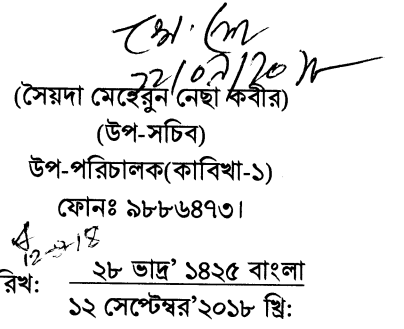 (সৈয়দা মেহেরুন নেছা কবীর)
(উপ-সচিব)
উপ-পরিচালক(কাবিখা-১)
ফোনঃ ৯৮৮৬৪৭৩।
রিখ: ২৮ ভাদ্র’ ১৪২৫ বাংলা
১২ সেপ্টেম্বর’২০১৮ খ্রি: